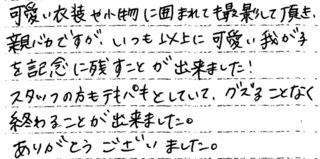 可愛い衣装や小物に囲まれても最影して頂き、
親バカですが、いつも以上に可愛い我が子
を記念に残すことが出来ました!
スタッフの方もテキパキとしていて、グズることなく
終わることが出来ました。
ありがとうございました。